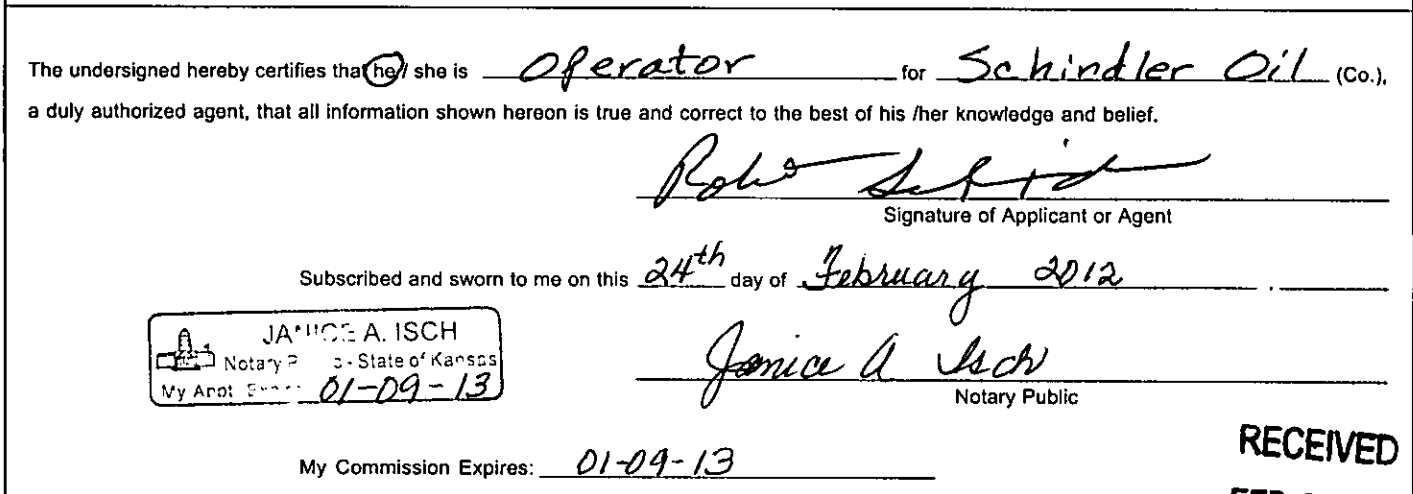 The undersigned hereby certifies that he / she is Operator for Schindler Oil (Co.),
a duly authorized agent, that all information shown hereon is true and correct to the best of his /her knowledge and belief.
Signature of Applicant or Agent
Subscribed and sworn to me on this 24th day of February 2012
JANICE A. ISCH
Notary - State of Kansas
My Appt. 01-09-13
Janice A Isch
Notary Public
RECEIVED
My Commission Expires: 01-09-13